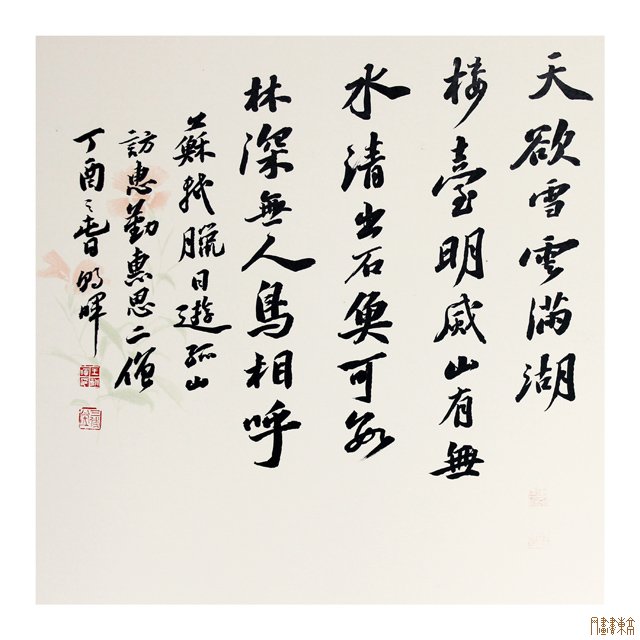 天欲雪雲满湖
楼臺明烕山有無
水清出石魚可数
林深無人鳥相呼
蘇軾臘日遊孤山
訪惠勤惠思二僧
丁酉之春 暉